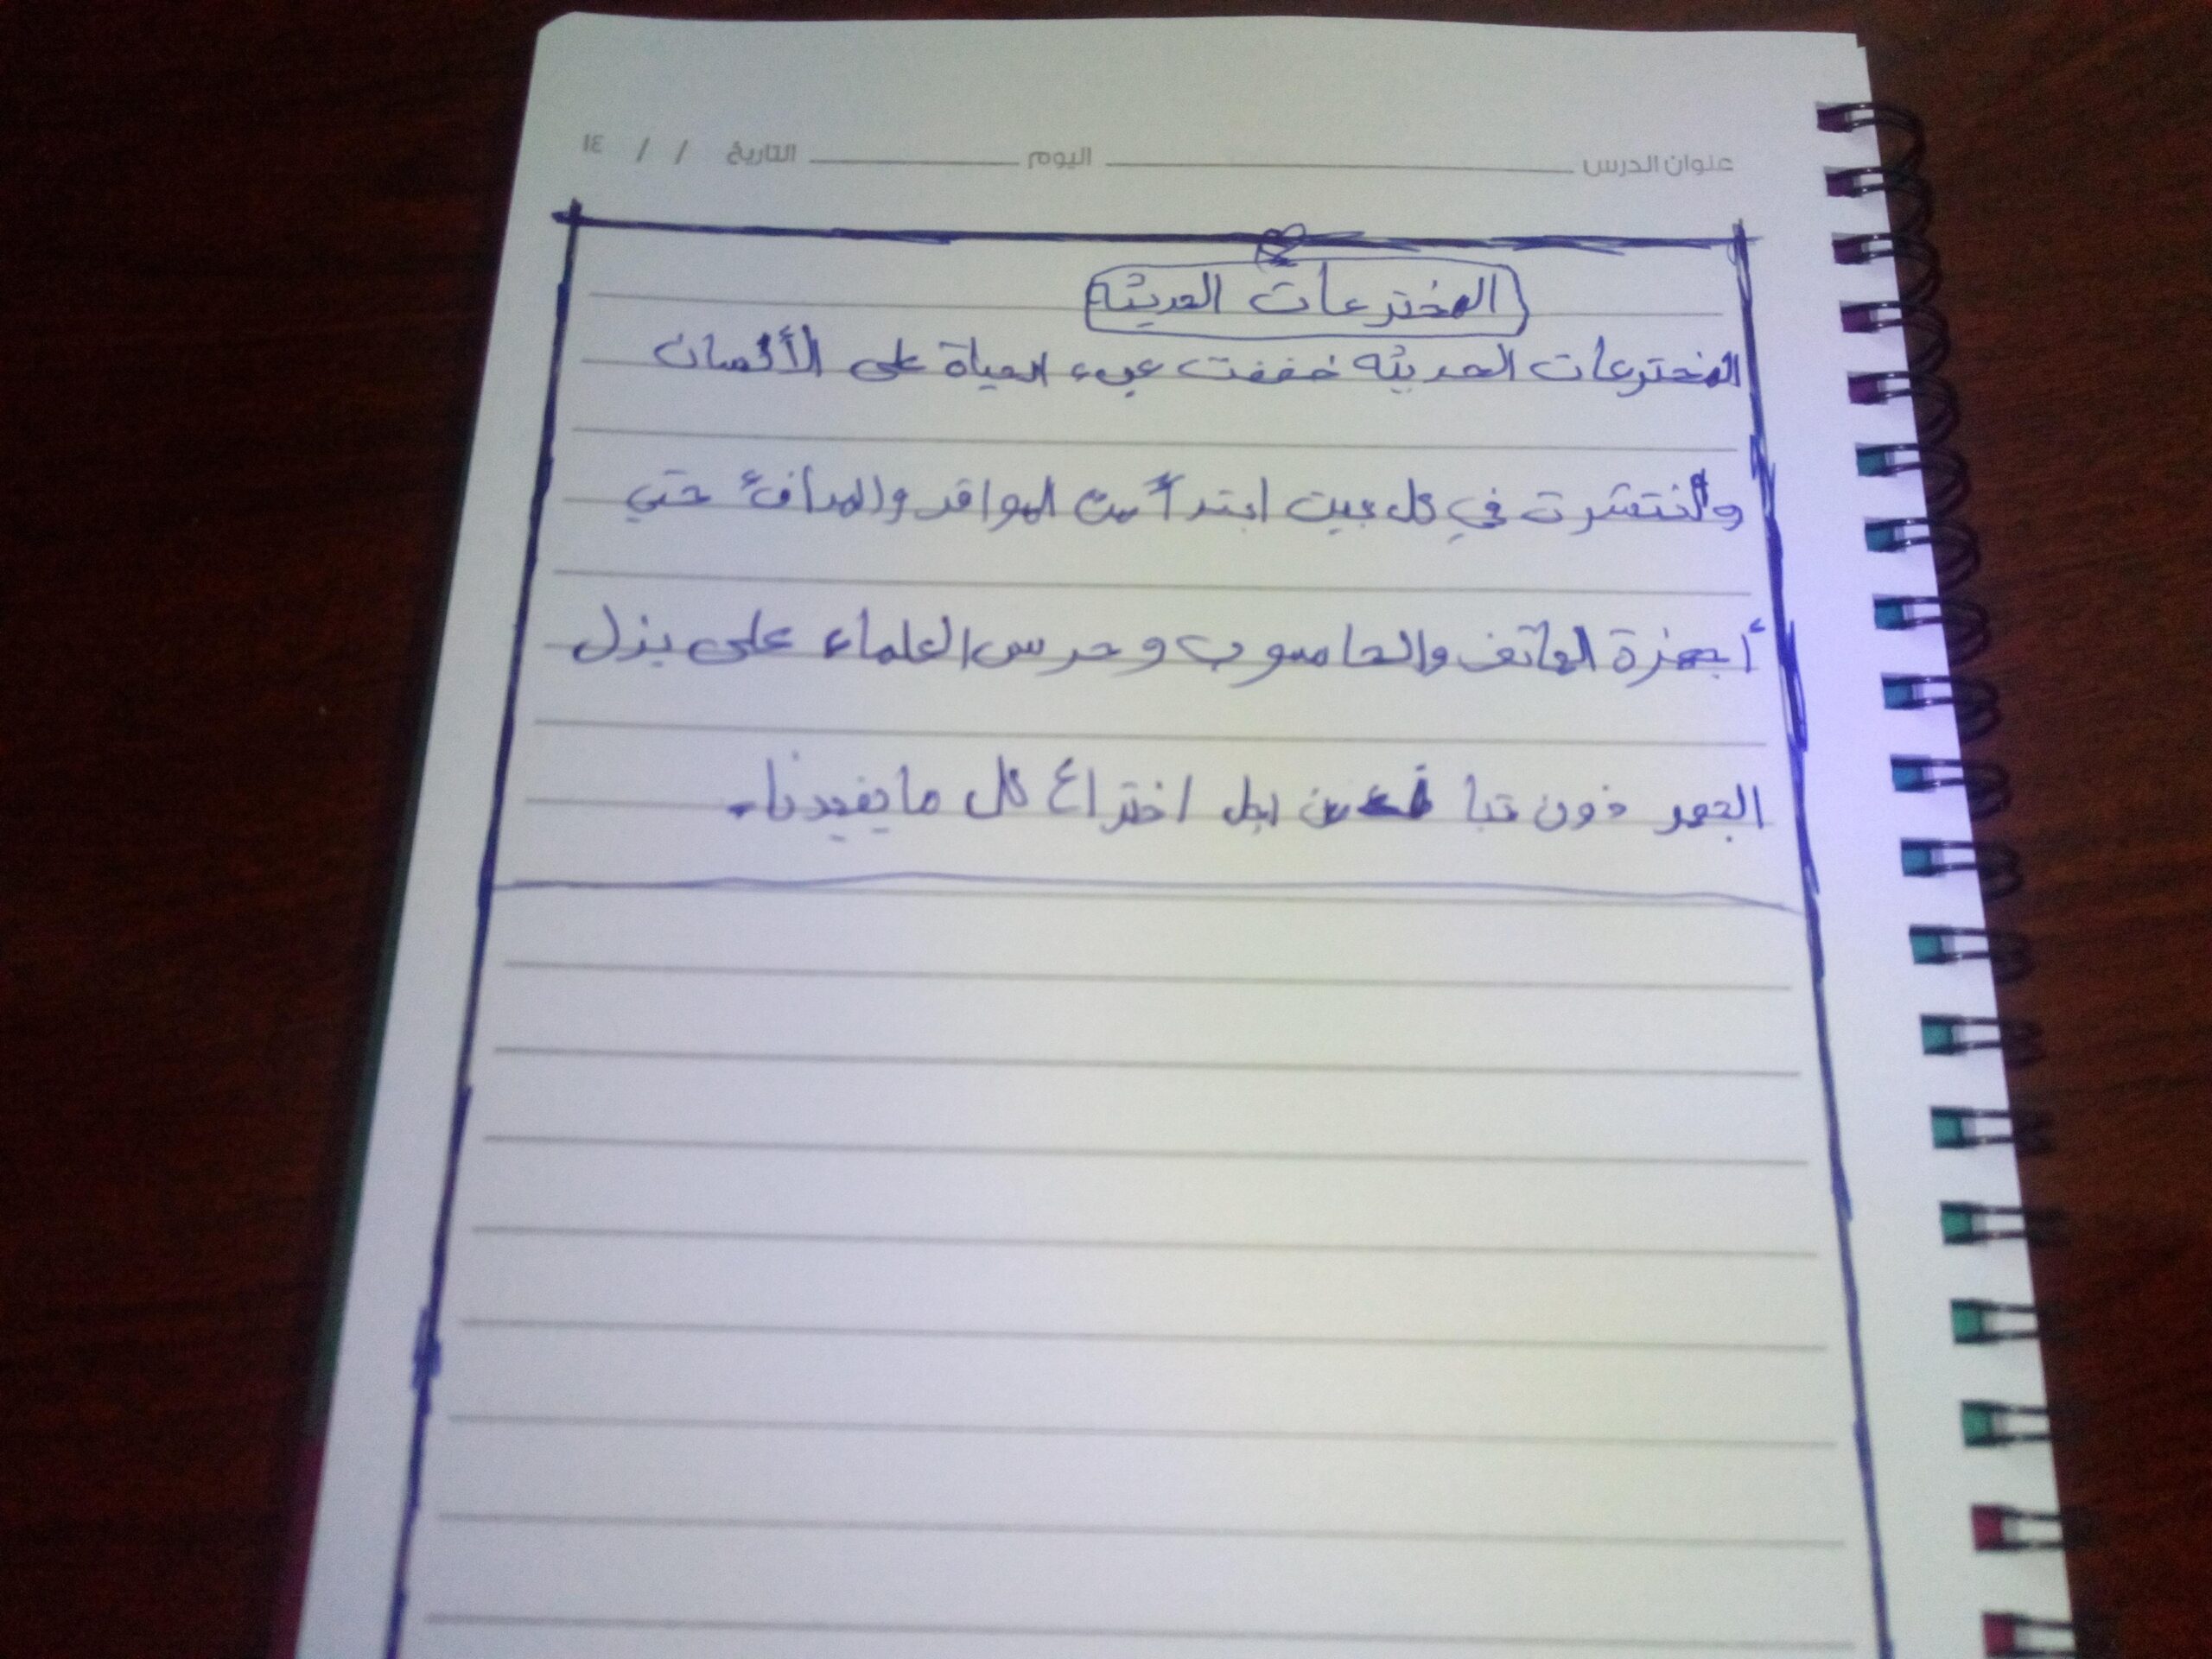 عنوان الدرس اليوم التاريخ / / ١٤
المخترعات الحديثه
المخترعات الحديثه خففت عبء الحياة على الأنسان
وأنتشرت في كل بيت ابتدأ من المواقد والمدافئ حتي
أجهزة الهاتف والحاسوب وحرس العلماء على بذل
الجهد دون تبا من اجل اختراع كل مايفيدنا.